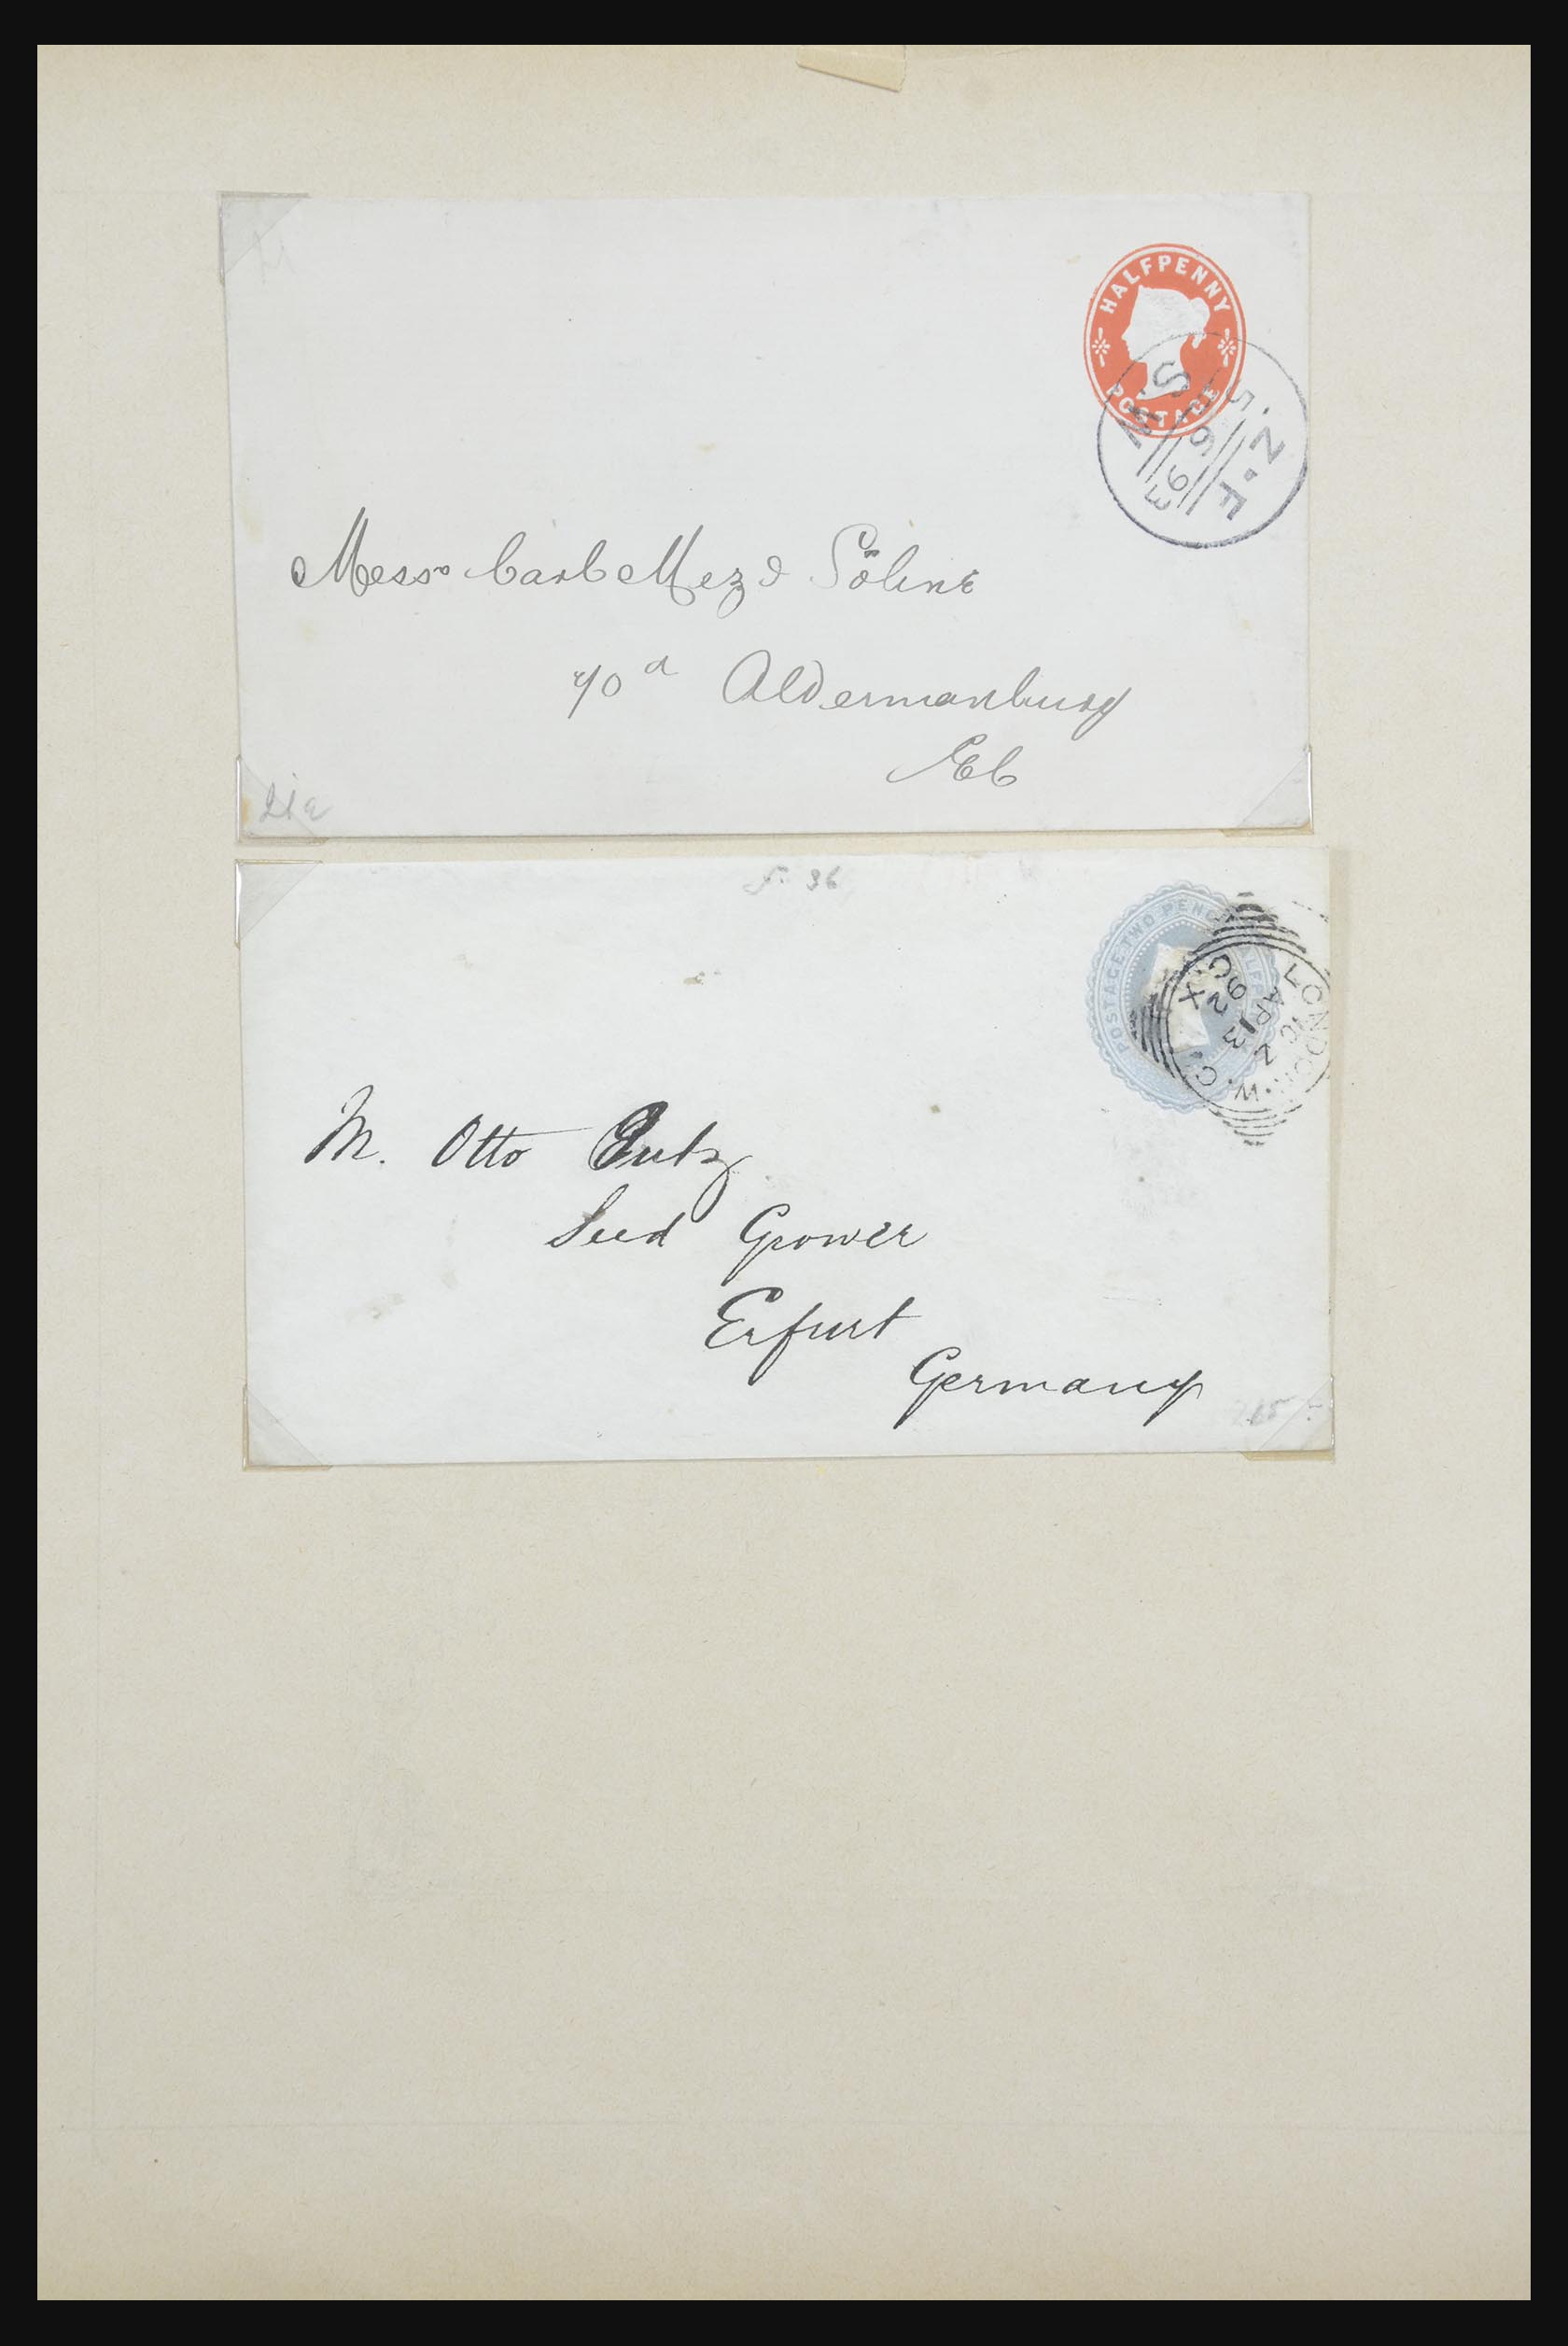 HALFPENNY
POSTAGE
F.S
93
Mess.rs Carl Mez & Söhne
70a Aldermanbury
EC
36
POSTAGE TWO PENCE
LONDON.W.C
AP 13
92
X
M. Otto Putz
Seed Grower
Erfurt
Germany